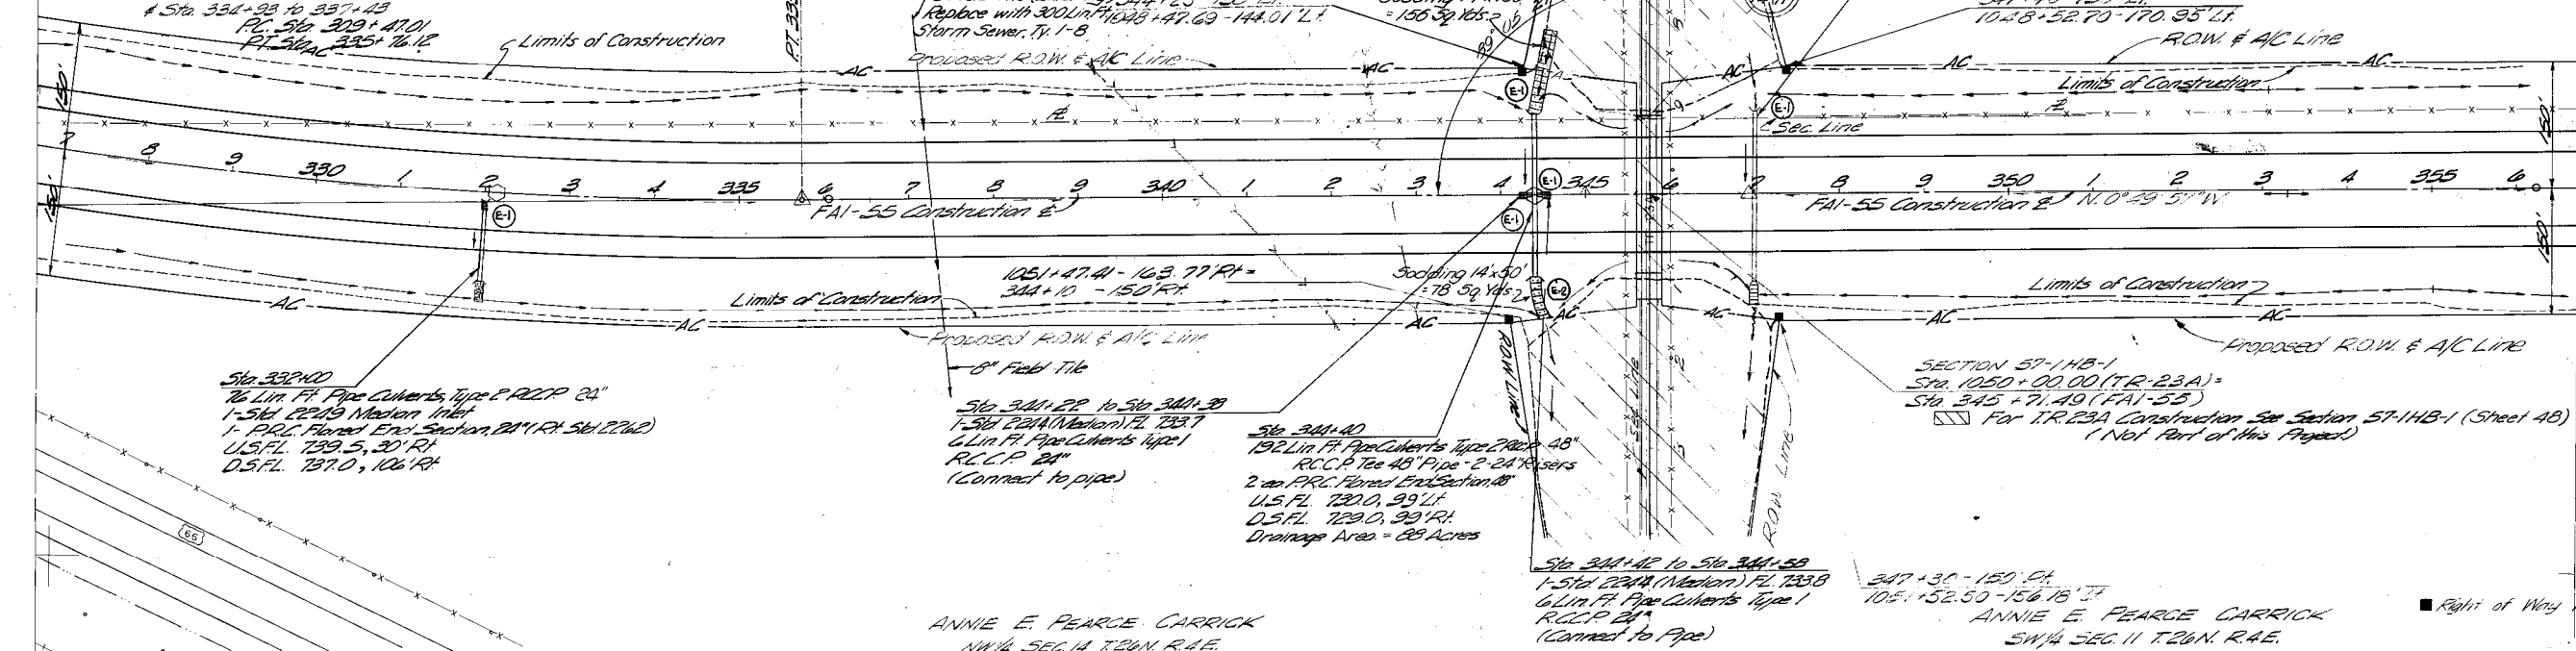 & Sta. 334+93 to 337+43
P.C. Sta. 309+47.01
P.T. Sta. 335+76.12
AC
Limits of Construction
Replace with 300 Lin. Ft.
Storm Sewer, Ty. 1-8
1048+47.69-144.01' Lt.
= 156 Sq. Yds.
1048+52.70-170.95' Lt.
R.O.W. & A/C Line
Proposed R.O.W. & A/C Line
AC
AC
AC
AC
AC
Limits of Construction
150'
150'
E-1
E-1
Sec. Line
8 9 330 1 2 3 4 335 6 7 8 9 340 1 2 3 4 345 6 7 8 9 350 1 2 3 4 355 6
E-1
E-1
E-1
FAI-55 Construction
FAI-55 Construction
N. 0° 49' 51" W.
150'
150'
1051+47.41-163.77' Rt. =
344+10 - 150' Rt.
Sodding 14'x50'
= 78 Sq. Yds.
E-2
Limits of Construction
Limits of Construction
AC
AC
AC
AC
AC
AC
AC
Proposed R.O.W. & A/C Line
Proposed R.O.W. & A/C Line
8" Field Tile
R.O.W. Line
R.O.W. Line
Sta. 332+00
76 Lin. Ft. Pipe Culverts, Type 2 R.C.C.P. 24"
1-Std. 2249 Median Inlet
1- P.R.C. Flared End Section, 24" (Rt. Std. 2262)
U.S.FL. 739.5, 30' Rt.
D.S.FL. 737.0, 106' Rt.
Sta. 344+22 to Sta. 344+38
1-Std. 2244 (Median) FL. 733.7
6 Lin. Ft. Pipe Culverts Type 1
R.C.C.P. 24"
(Connect to pipe)
Sta. 344+40
192 Lin. Ft. Pipe Culverts Type 2 R.C.C.P. 48"
R.C.C.P. Tee 48" Pipe-2-24" Risers
2 ea. P.R.C. Flared End Section, 48"
U.S.FL. 730.0, 99' Lt.
D.S.FL. 729.0, 99' Rt.
Drainage Area = 88 Acres
SECTION 57-1HB-1
Sta. 1050+00.00 (TR-23A) =
Sta. 345+71.49 (FAI-55)
For T.R. 23A Construction See Section 57-1HB-1 (Sheet 48)
(Not Part of this Project)
66
Sta. 344+42 to Sta. 344+58
1-Std. 2244 (Median) FL. 733.8
6 Lin. Ft. Pipe Culverts Type 1
R.C.C.P. 24"
(Connect to Pipe)
347+30-150' Rt.
1051+52.50-156.18' Lt.
ANNIE E. PEARCE CARRICK
NW 1/4 SEC. 14 T.26N. R.4E.
ANNIE E. PEARCE CARRICK
SW 1/4 SEC. 11 T.26N. R.4E.
Right of Way